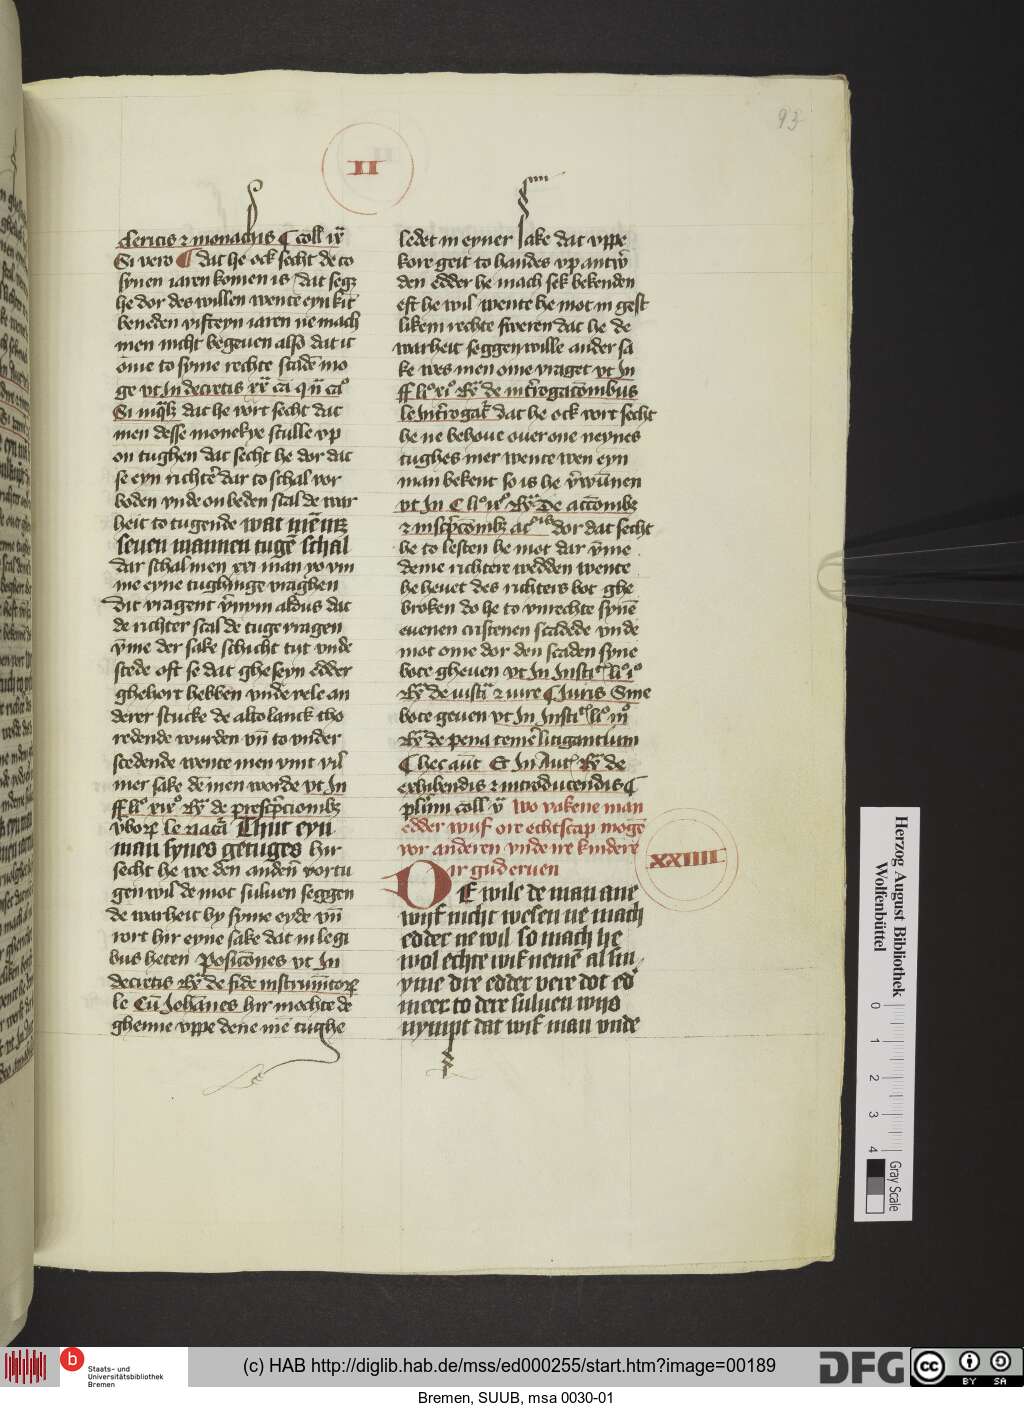 93
II
clericis ⁊ monachis ¶ coll ix̄
Si vero ¶ dat he ock secht de to
synen iaren komen is dat segꝫ
he dor des willen wente eyn kīt
beneden vifteyn iaren ne mach
men nicht begeuen alſo dat it
ome to syme rechte scadē mo
ge vt In decretis xxͣ cā q̄ cāͦ
dat he wert secht dat
men desse moneke stulle vp
on tughen dat secht he dor dat
se eyn richtē dar to schal vor
boden vnde on beden scal de war
heit to tugende wat mē mꝫ
seuen mannen tugē schal
dar schal men xxi man vo vm
me eyne tughinge vraghen
Dit vragent v̄nym aldus dat
de richter scal de tuge vragen
v̄me der sake schicht tut vnde
stede oft se dat gheseyn edder
ghehort hebben vnde vele an
derer stucke de alto lanck tho
redende wurden vn̄ to vnder
scedende wente men vint vil
mer sake dē men worde vt In
ff liͦ xixͦ Rͣ de prescp̄ciombꝫ
v̄borꝝ le Thut eyn
man synes getuges hir
secht he we den anderū vortu
gen wil de mot suluen seggen
de warheit by syme eyde vn̄
wort hir eyne sake dat in legi
bus heten posicōnes vt In
decretis Rͣ de fide instrumētorꝝ
le Cū Johānes hir mochte de
ghenne vppe dene mē tughe
ledet in eyner sake dat vppe
kore geit to handes vp antw̄
den edder he mach sek bekenden
eft he wil wente he mot in gest
likem rechte sweren dat he de
warheit seggen wille ander sa
ke wes men ome vraget vt In
ff liͦ xiͦ Rͣ de int̄rogacōmbus
le Int̄rogat̄ dat he ock wort secht
he ne behoue ouer one neynes
tughes mer wente wen eyn
man bekent so is he v̄wūnen
vt In C liͦ ixͦ Rͣ De accōmbꝫ
⁊ inscp̄cōmbꝫ dor dat secht
he to lesten he mot dar v̄me
deme richtere wedden wente
he heuet des richters bot ghe
broken do he to vnrechte synē
euenen cristenen scadede vnde
mot ome dor den scaden syne
bote gheuen vt In Instiͭ liͦ iͦ
Rͣ de iustiͣ ⁊ iure ¶ Juris Sine
bote geuen vt In Instiͭ liͦ iiiͦ
Rͣ de pena temeͤ litigantium
¶ hec aūt Et In Autͭ Rͣ de
exhibendis ⁊ introducendis ¶
pl'imī coll v̄ wo vakene man
edder wiuf ore echtscap mogē
vor anderen vnde ire kindere
XXIIII
ir guderuen
OE wile de man ane
wijf nicht wesen ne mach
edder ne wil so mach he
wol echte wif nemē al sin
yme dre edder vere dot ed
meer to dere suluen wijs
nympt dat wif man vnde
Herzog August Bibliothek
Wolfenbüttel
0 1 2 3 4
Gray Scale
b
Staats- und
Universitätsbibliothek
Bremen
(c) HAB http://diglib.hab.de/mss/ed000255/start.htm?image=00189
DFG
cc BY SA
Bremen, SUUB, msa 0030-01